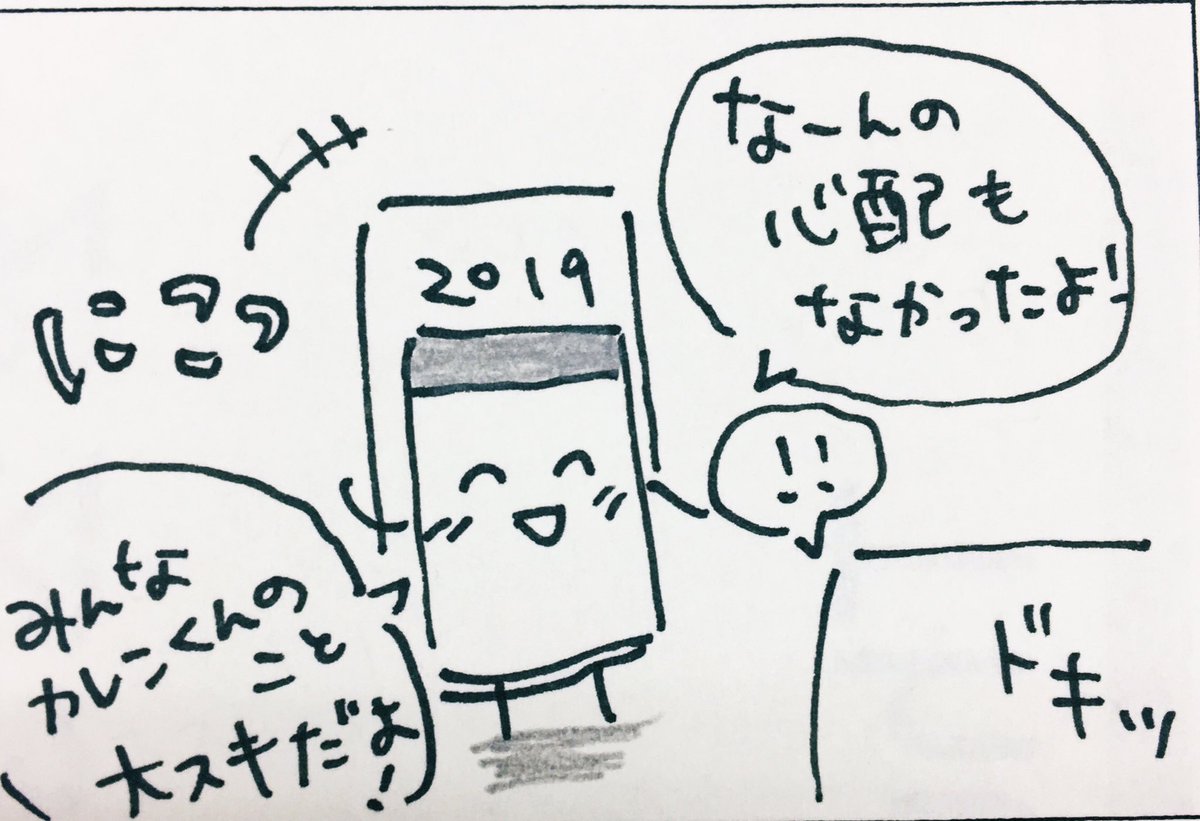 なーんの
心配も
なかったよ!
2019
!!
みんな
カレンくんの
こと
大スキだよ
!
ドキッ